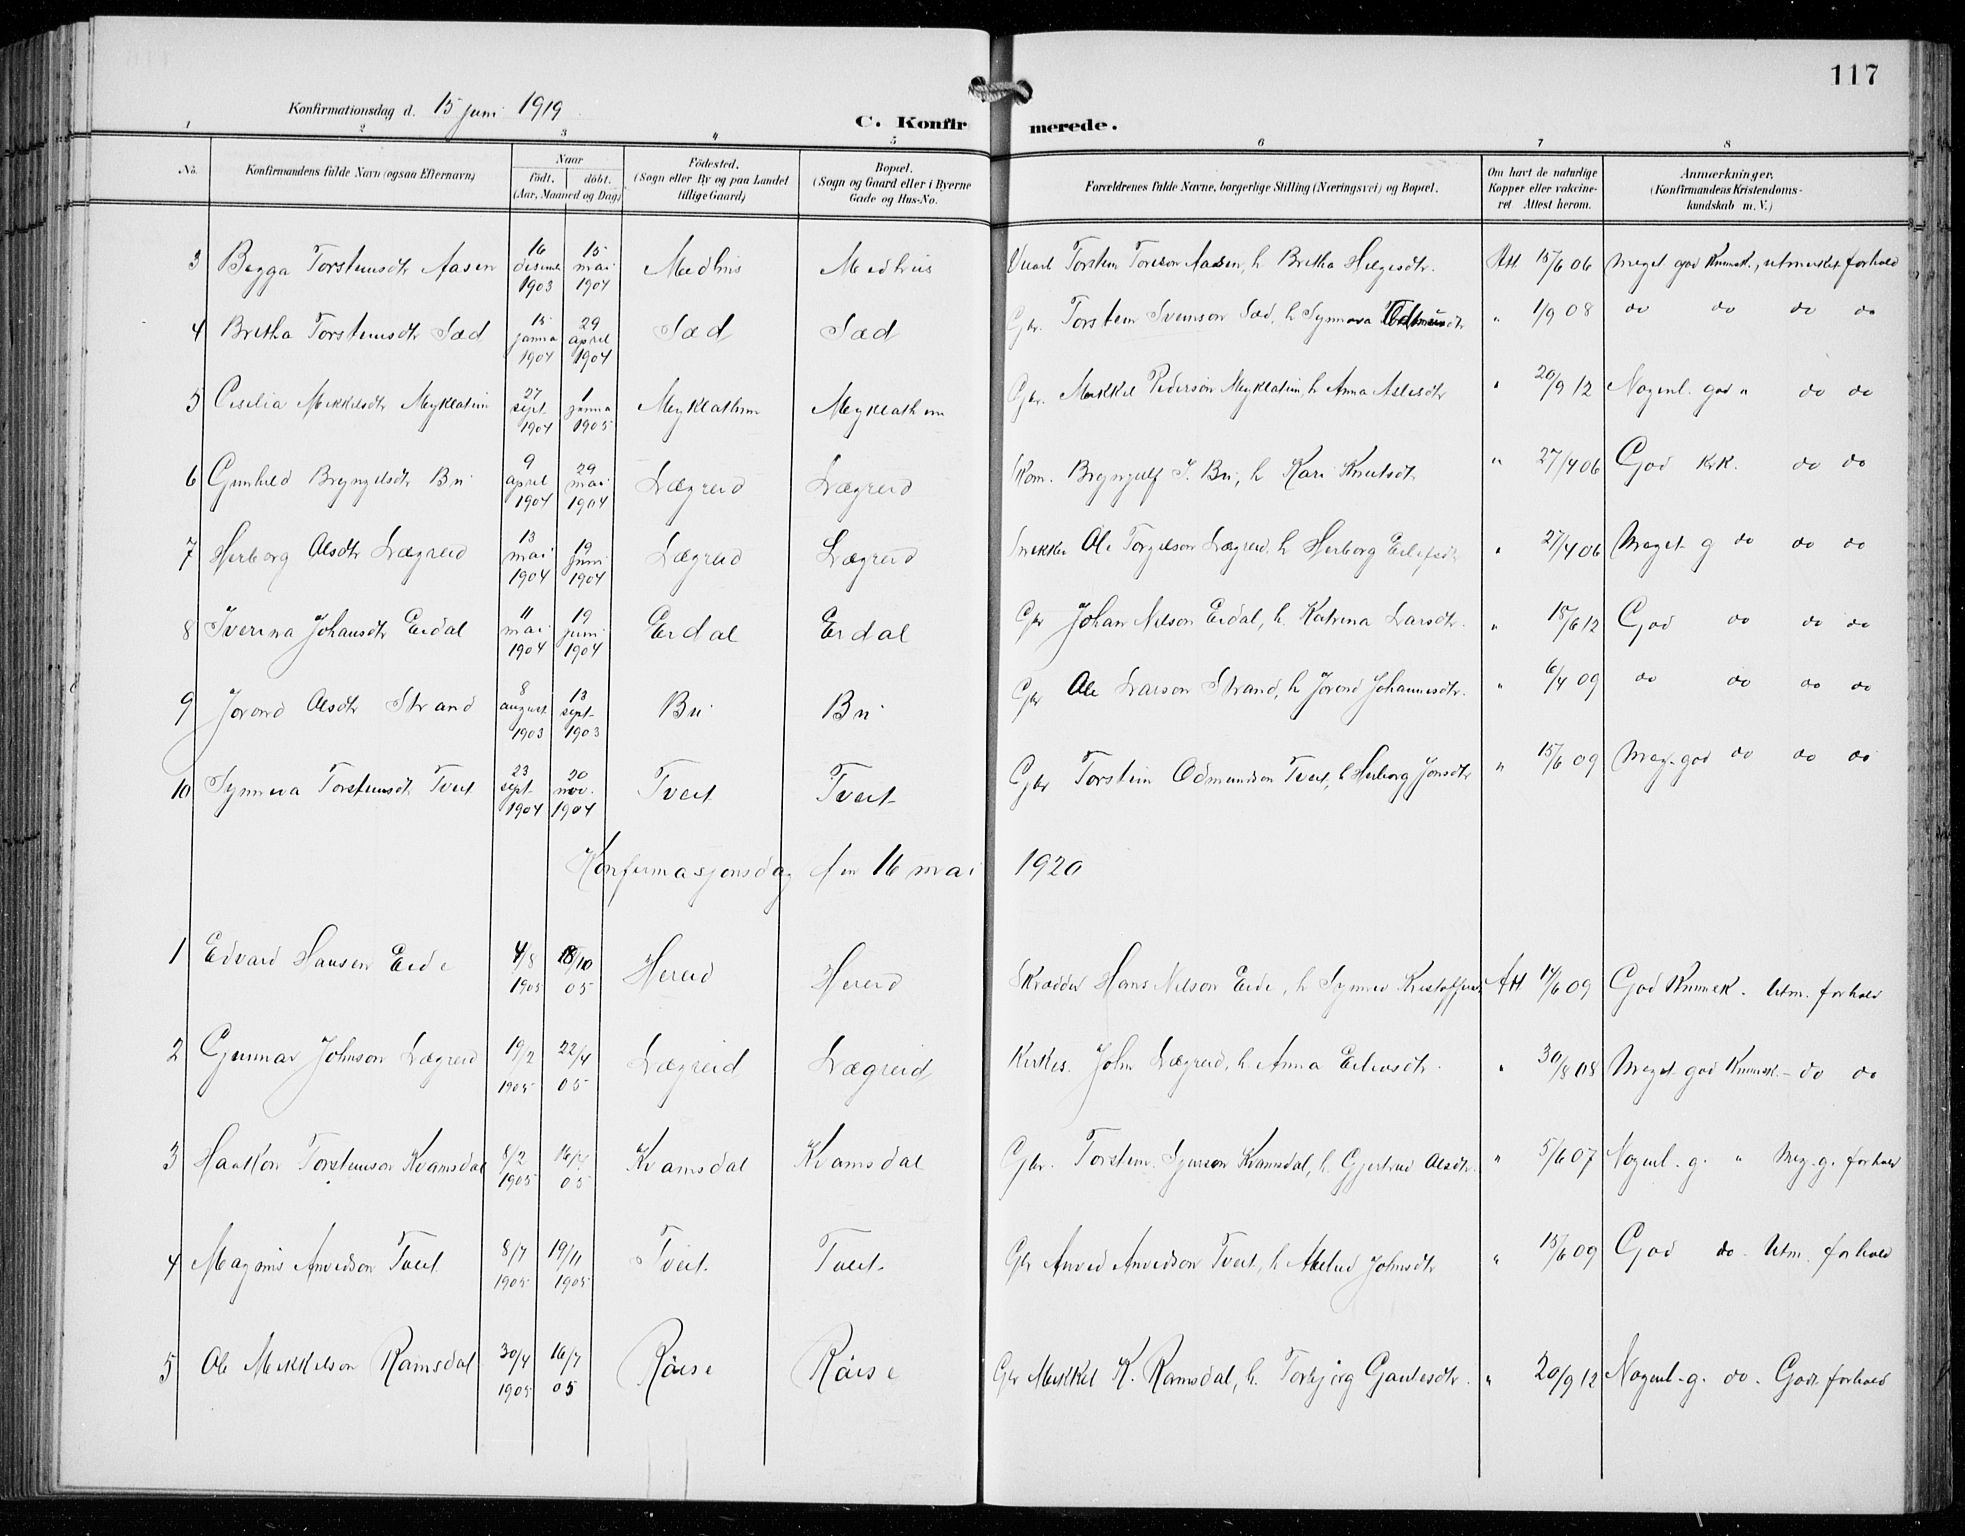 117
Konfirmationsdag d. 15 juni 1919
C. Konfirmerede.
1 2 3 4 5 6 7 8
No.
Konfirmandens fulde Navn (ogsaa Efternavn)
Naar
födt. döbt.
(Aar, Maaned og Dag)
Födested.
(Sogn eller By og paa Landet
tillige Gaard)
Bopæl.
(Sogn og Gaard eller i Byerne
Gade og Hus-No.
Forældrenes fulde Navne, borgerlige Stilling (Næringsvei) og Bopæl.
Om havt de naturlige
Kopper eller vakcine-
ret Attest herom.
Anmærkninger.
(Konfirmandens Kristendoms-
kundskab m. V.)
3 Begga Torsteinsdtr Aasen 16 desemb 1903 15 mai 1904 Medhus Medhus Torstein Aasen, h. Bretha Helgesdtr. Att 15/6 06 Meget god Kunnsk., utmerket forhold
4 Bretha Torsteinsdtr Sæd 15 janua 1904 29 april 1904 Sæd Sæd Gbr. Torstein Svenson Sæd, h. Synneva " 1/9 08 do do do do
5 Cesilia Mikkelsdtr Myklatun 27 sept. 1904 1 janua 1905 Myklathun Myklathun Gbr. Mikkel Pederson Myklatun, h. Anna Aslesdtr " 20/9 12 Nogenl. god " do do
6 Gunhild Bryngelsdtr Bu 9 april 1904 29 mai 1904 Lægreid Lægreid Bryngulf J. Bu, h. Kari Knutsdt " 27/4 06 God do do
7 Herborg Olsdtr Lægreid 13 mai 1904 19 juni 1904 Lægreid Lægreid Snekker Ole Torgilson Lægreid, h. Herborg Eilefsdt " 27/4 06 Meget g do do do
8 Iverina Johansdtr Eidal 11 mai 1904 19 juni 1904 Eidal Eidal Gbr Johan Nilson Eidal, h. Katrina Larsdtr. " 15/6 12 God do do do
9 Jorond Olsdtr Strand 8 august 1903 13 sept. 1903 Bu Bu Gbr Ole Larson Strand, h. Jorond Johannesdtr. " 6/4 09 do do do do
10 Synneva Torsteinsdt Tveit 23 sept. 1904 20 nov. 1904 Tveit Tveit Gbr Torstein Odmundson Tveit, h. Herborg Jonsdtr " 15/6 09 Meg. god do do do
Konfirmasjonsdag den 16 mai 1920
1 Edvard Hansen Eide 4/8 1905 18/10 05 Hereid Hereid Skrædder Hans Nilson Eide, h. Synnev Att 14/6 09 God Kunnsk. Utm. forhold
2 Gunnar Johnson Lægreid 19/2 1905 22/4 05 Lægreid Lægreid Kirkes. John Lægreid, h. Anna Eilevsdtr. " 30/8 08 Meget god Kunnsk. - do do
3 Haakon Torsteinson Kvamsdal 8/2 1905 05 Kvamsdal Kvamsdal Gbr. Torstein Kvamsdal, h. Gjertrud Olsdtr. " 5/6 07 Nogenl. g. " Meg. g. forhold
4 Magnus Anvedson Tveit 8/7 1905 19/11 1905 Tveit Tveit Gbr Anved Anvedson Tveit, h. Johnsdtr " 15/6 09 God do. Utm. forhold
5 Ole Mikkelson Ramsdal 30/4 1905 16/7 05 Røise Røise Gbr Mikkel K. Ramsdal, h. Torbjørg Gautesdtr. " 20/9 12 Nogenl. g. do. Godt forhold